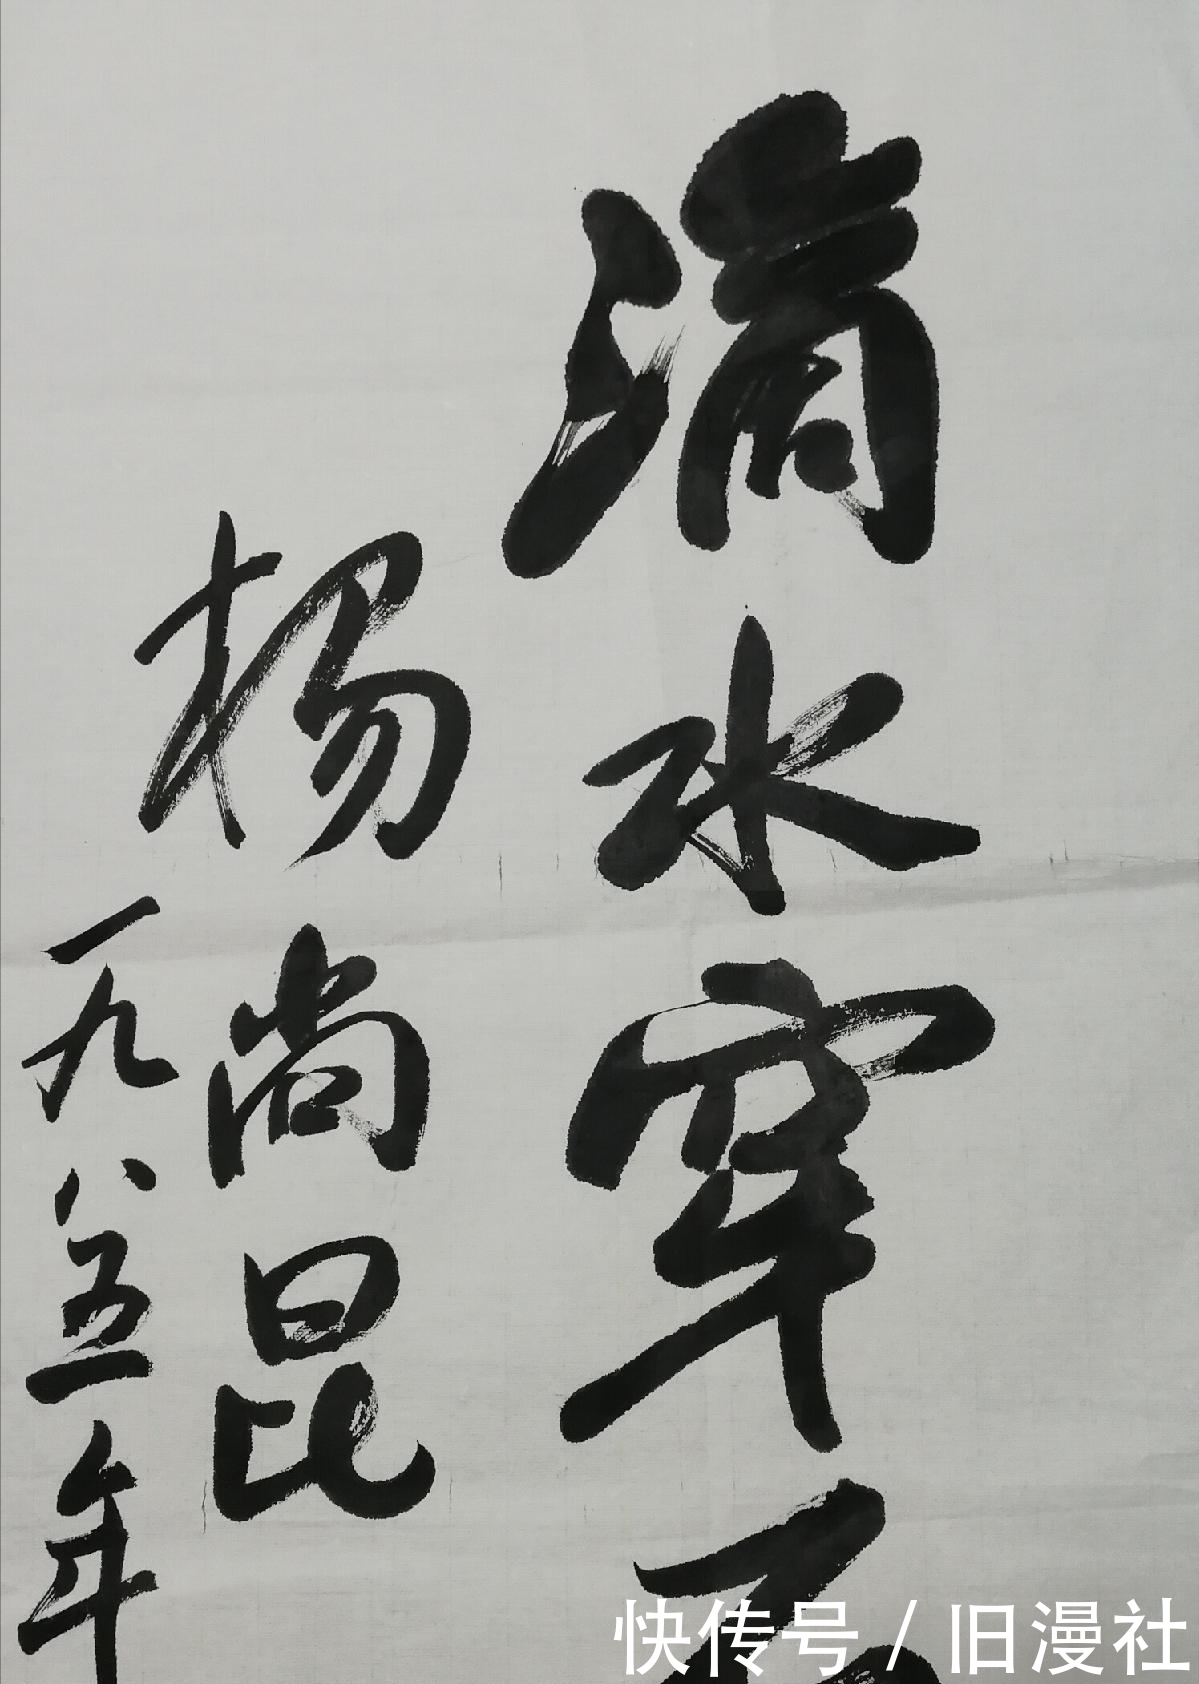 滴水穿石
杨尚昆
一九八五年
快传号 / 旧漫社